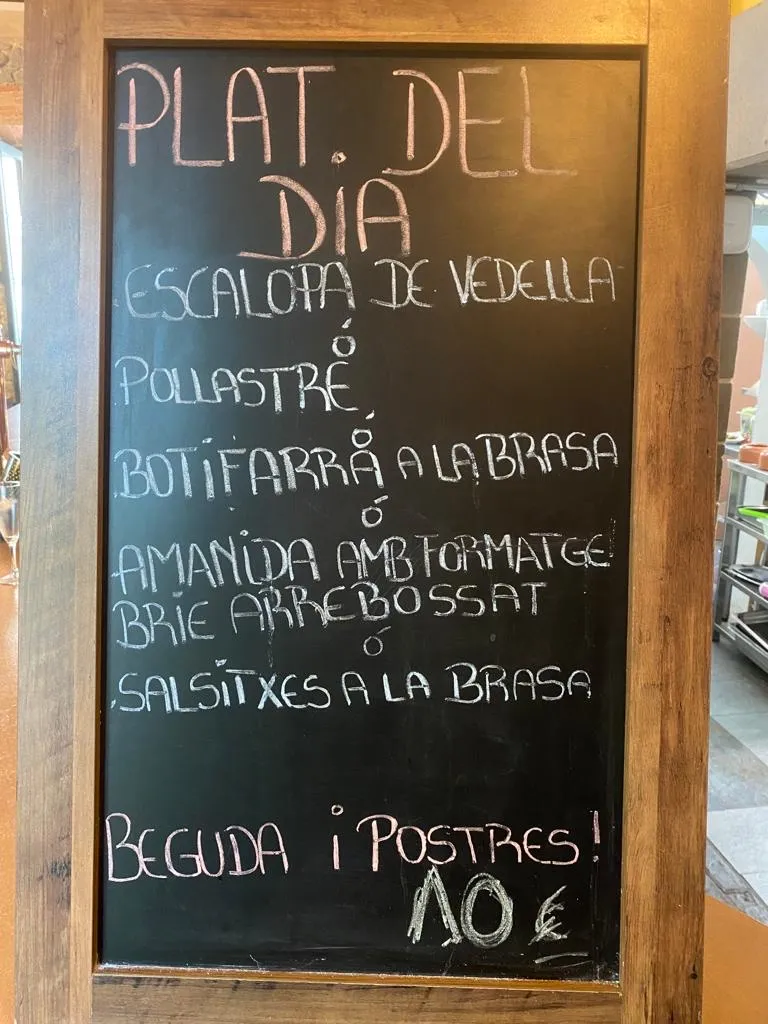 PLAT. DEL
DIA
ESCALOPA DE VEDELLA
Ó
POLLASTRE
Ó
BOTIFARRA A LA BRASA
Ó
AMANIDA AMB FORMATGE
BRIE ARREBOSSAT
Ó
SALSITXES A LA BRASA
BEGUDA i POSTRES!
10 €